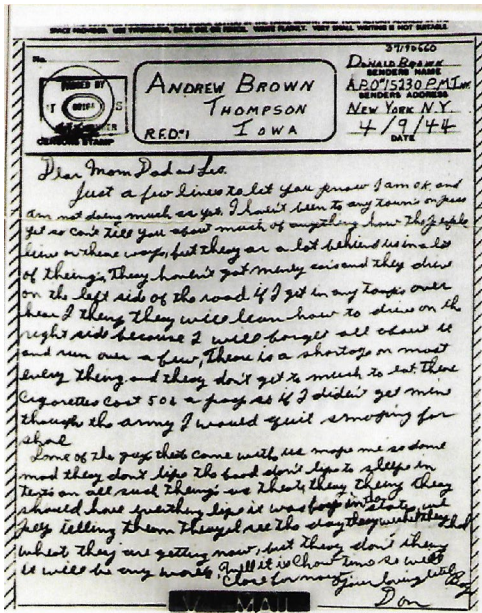 SPACE PROVIDED. USE TYPEWRITER, DARK INK OR PENCIL. WRITE PLAINLY. VERY SMALL WRITING IS NOT SUITABLE
No.
PASSED BY
CENSOR'S STAMP
ANDREW BROWN
THOMPSON
R.F.D.#1 IOWA
37190660
DONALD BROWN
SENDERS NAME
A.P.O. 15230 P.M.
SENDERS ADDRESS
NEW YORK N.Y.
4/9/44
DATE
Dear Mom Dad and
Just a few lines to let you know I am ok and
am not doing much as yet. I haven't been to any towns on pass
yet so can't tell you about much of anything how the people
live or there ways, but they ar a lot behind us in a lot
of things, They haven't got many cars and they drive
on the left side of the road if I get in any over
hear I they will lean how to drive on the
right side because I will forget all about it
and run over a few, There is a shortage on most
every thing and they don't get to much to eat, there
cigarettes cost 50¢ a pack so if I diden't get mine
though the army I would quit smoking for
shore
Some of the guys that came with us make me so dame
mad they don't like the food don't like to sleep in
tents an all such things as that, they they
should have everthing like it was back in the states, we
keep telling them they'el see the day they
what they are getting now, but they don't
it will be any worse, Well it is chow time so will
close for now
Your loving Boy
Don
V-MAIL